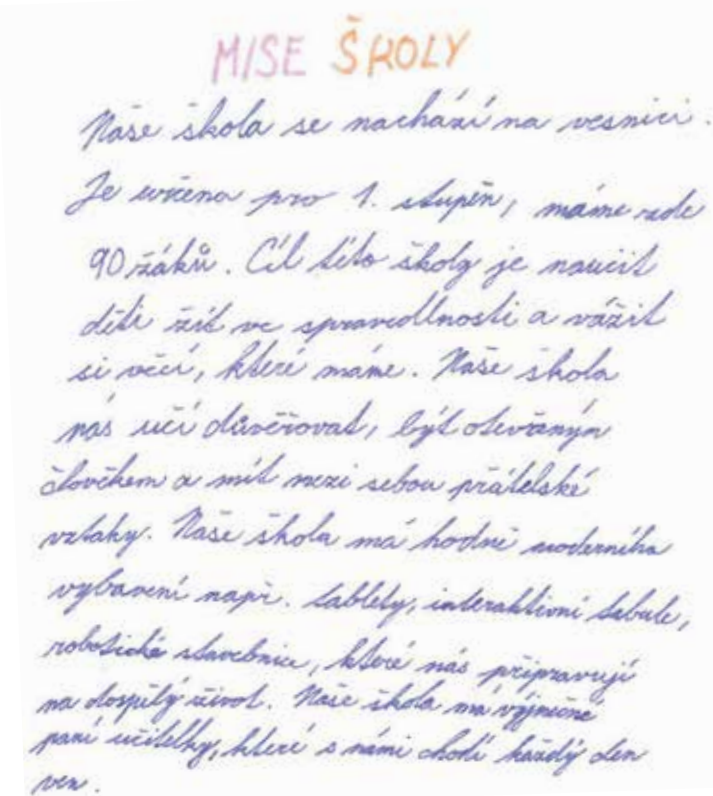 MISE ŠKOLY
Naše škola se nachází na vesnici.
Je určena pro 1. stupěn, máme zde
90 žáků. Cíl této školy je naučit
děti žít ve spravedllnosti a vážit
si věcí, které máme. Naše škola
nás učí důvěřovat, být otevřaným
člověkem a mít mezi sebou přátelské
vztahy. Naše škola má hodně moderního
vybavení např. tablety, interaktivní tabule,
robotické stavebnice, které nás připravují
na dospělý život. Naše škola má výjmečné
paní učitelky, které s námi chodí každý den
ven.